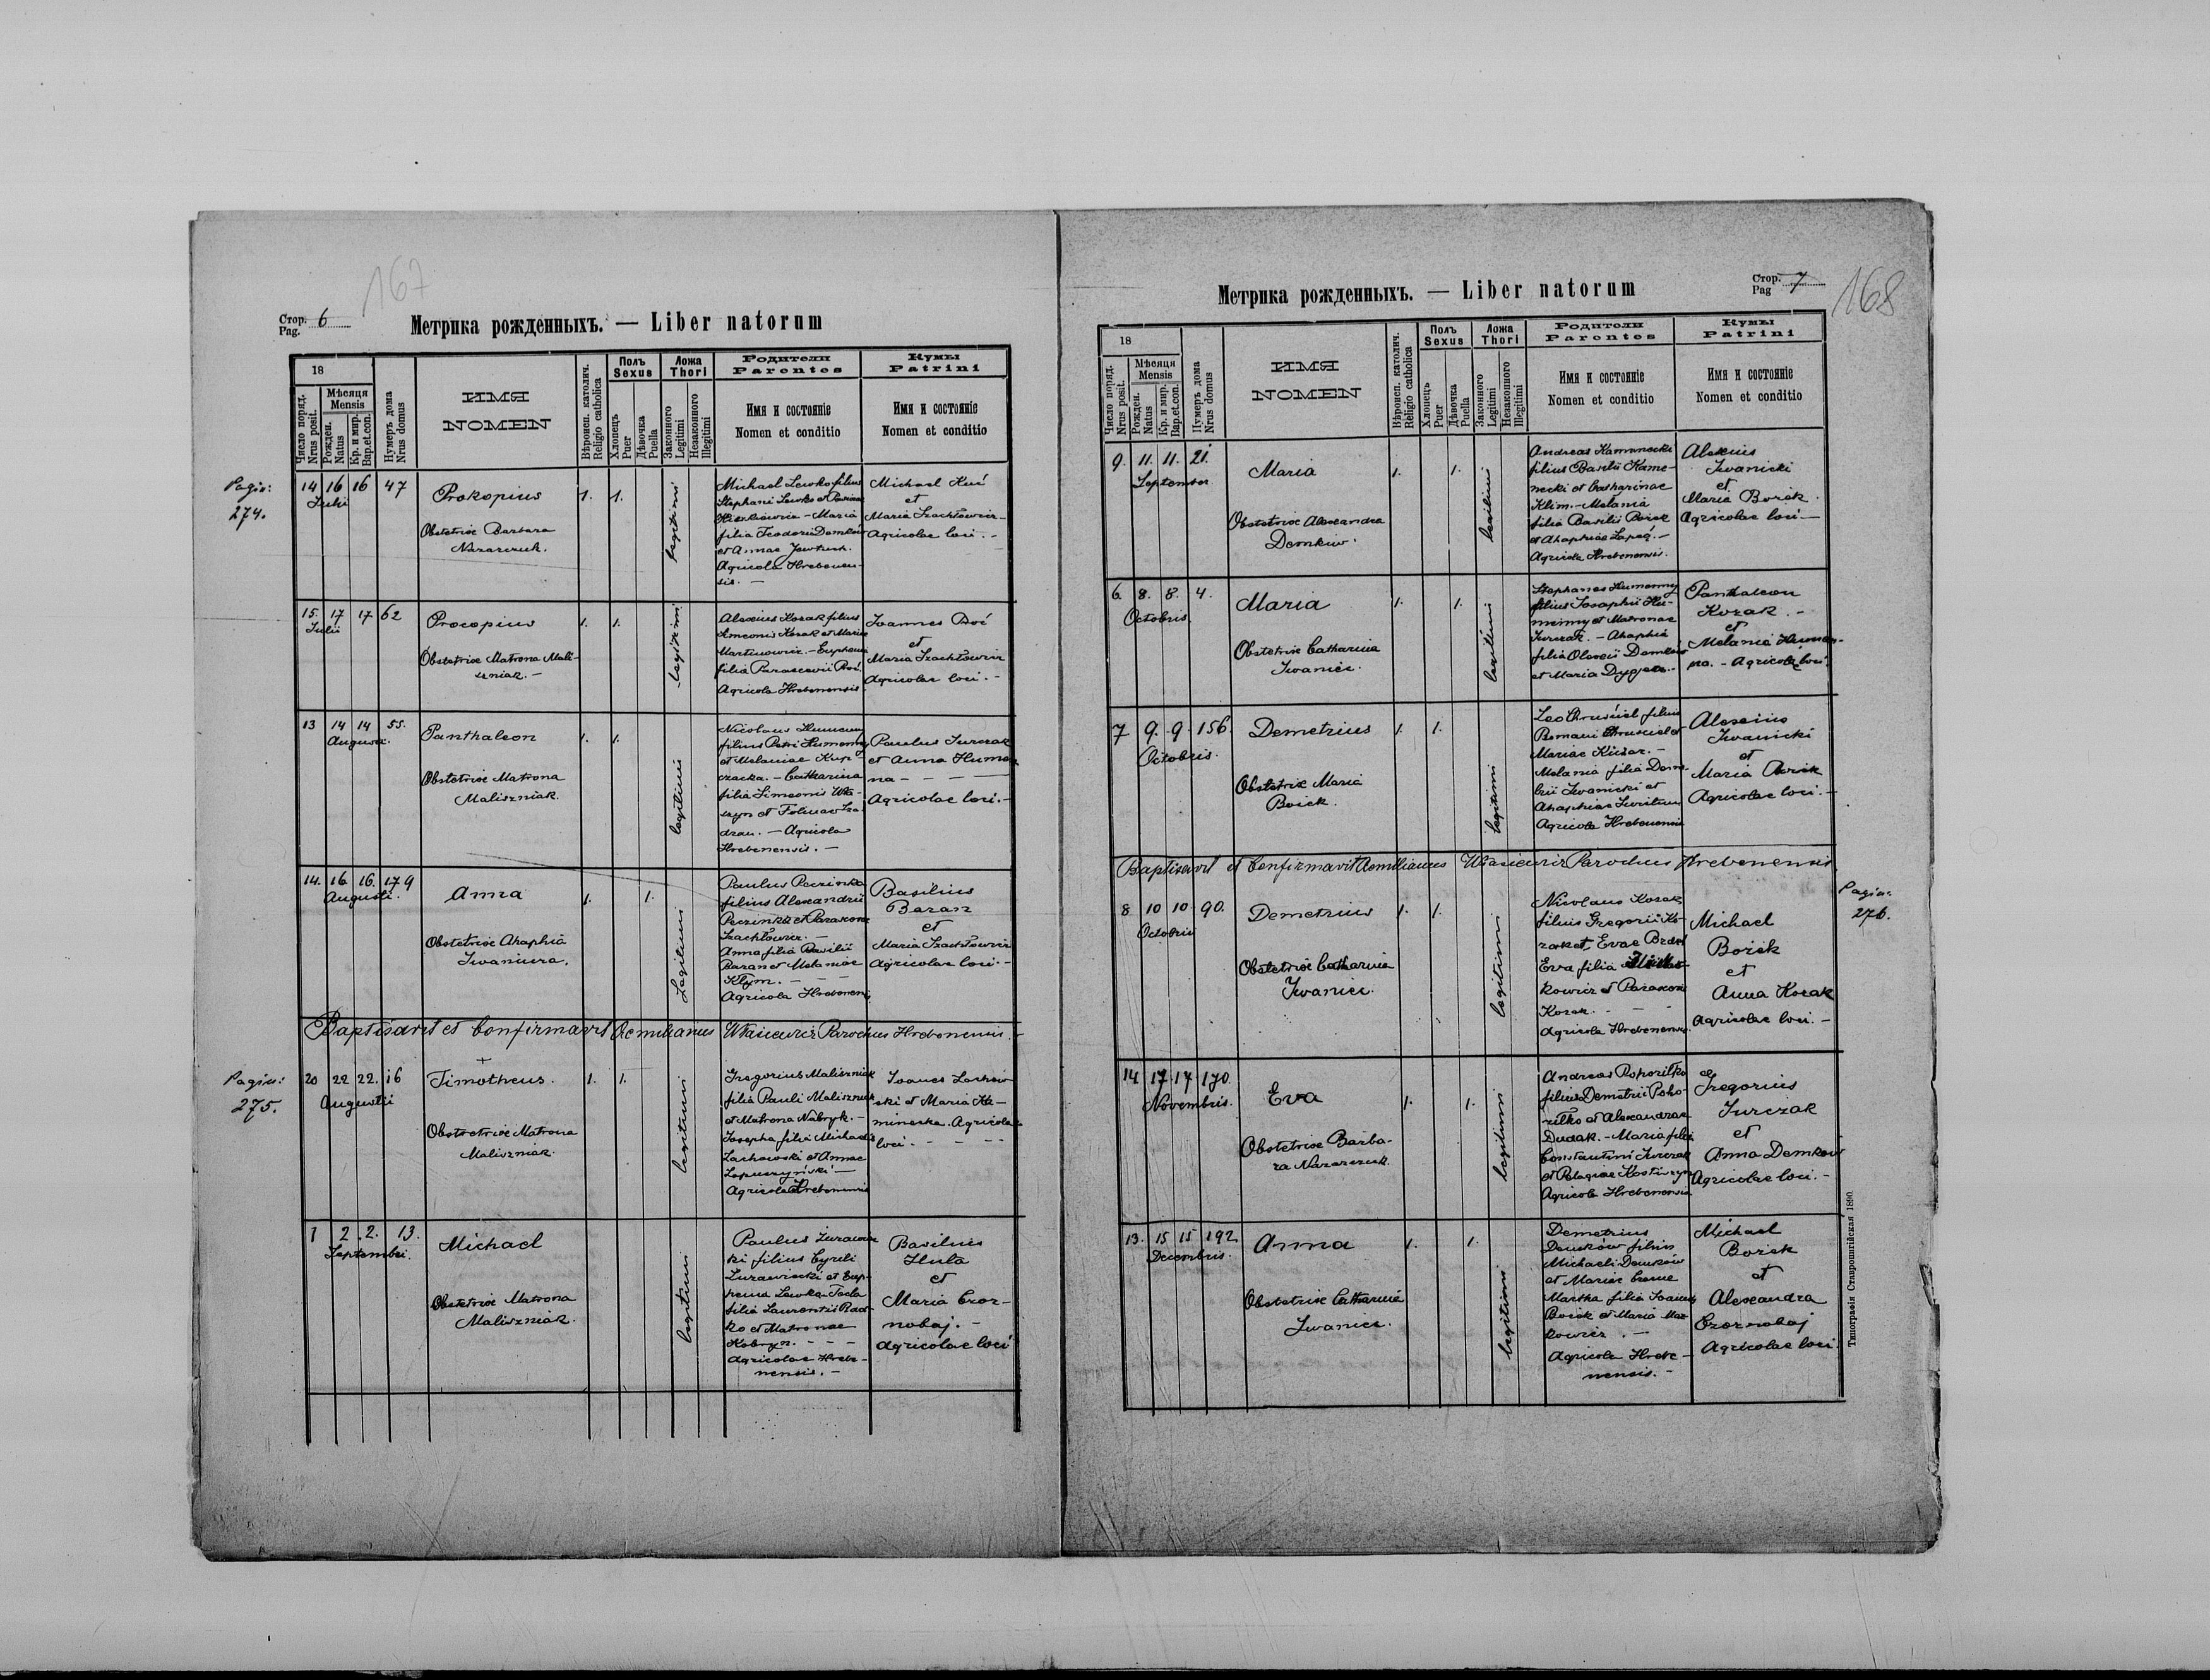 167
Стор. 6
Pag.
Метрика рожденныхъ. — Liber natorum
18
Число поряд.
Nrus posit.
Мѣсяця
Mensis
Рожден.
Natus
Кр. и мир.
Bap.et.con.
Нумеръ дома
Nrus domus
ИМЯ
NOMEN
Вѣроисп. католич.
Religio catholica
Полъ
Sexus
Хлопецъ
Puer
Дѣвочка
Puella
Ложа
Thori
Законного
Legitimi
Незаконного
Illegitimi
Родители
Parentes
Имя и состоянiе
Nomen et conditio
Кумы
Patrini
Имя и состоянiе
Nomen et conditio
Pagin:
274.
14 16 16 47
Julii
Prokopius
Obstetrix Barbara
Nazarczuk.
1. 1.
legitimi
Michael Lewko filius
Stephani Lewko et
Maria
filia Teodori Demków
et Annae
Agricola Hrebenen-
sis. —
Michael Kuć
et
Maria Szachłowicz-
Agricolae loci. -
15. 17 17 62
Julii
Procopius
Obstetrix Matrona Mali-
szniak. —
1. 1.
legitimi
Alexius Kozak filius
Simeonis Kozak et Mariae
Martinowicz. — Euphemia
filia Parascevii
Agricola Hrebenensis
Joannes
et
Maria Szachłowicz
Agricolae loci. -
13 14 14 55.
Augusti.
Panthaleon
Obstetrix Matrona
Maliszniak.
1. 1.
legitimi
Nicolaus Humenny
filius Petri Humenny
et Melaniae Kup-
czacka. — Catharina
filia Simeonis
et
— Agricola
Hrebenensis. —
Paulus Jurczak
et Anna Humen
na — — —
Agricolae loci. -
14. 16 16. 179
Augusti.
Anna
Obstetrix Ahaphia
Iwanicra.
1. 1.
Legitimi
Paulus Peczinka
filius Alexandri
Peczinka et Parascevae
Szachłowicz. —
Anna filia Basilii
Baran et Melaniae
Klym. —
Agricola Hrebenens
Basilius
Baran
et
Maria Szachłowicz
Agricolae loci. -
Baptisavit et confirmavit Aemilianus Parochus Hrebenensis.
Pagin:
275.
20 22 22. 16
Augusti
Timotheus.
Obstetrix Matrona
Maliszniak.
1. 1.
legitimi
Gregorius Maliszniak
filia Pauli Maliszniak
et Matrona Nabryk. —
Josepha filia Michaelis
Lachowski et Annae
Łopuszyński —
Agricola Hrebenensis
Joanes Lachow
ski et Maria Ka-
mineska. Agricolae
loci. - - - -
1 2. 2. 13.
Septembri.
Michael
Obstetrix Matrona
Maliszniak.
legitimi
Paulus Zurawic
ki filius Cyrili
Zurawiecki et Eup-
hema Lewko - Tecla
filia Laurentii
ko et Matronae
Kobryn. - - -
Agricolae Hrebe-
nensis. —
Basilius
Hula
et
Maria Czor-
nobaj. -
Agricolae loci
168
Стор. 7
Pag
Метрика рожденныхъ. — Liber natorum
18
Число поряд.
Nrus posit.
Мѣсяця
Mensis
Рожден.
Natus
Кр. и мир.
Bap.et.con.
Нумеръ дома
Nrus domus
ИМЯ
NOMEN
Вѣроисп. католич.
Religio catholica
Полъ
Sexus
Хлопецъ
Puer
Дѣвочка
Puella
Ложа
Thori
Законного
Legitimi
Незаконного
Illegitimi
Родители
Parentes
Имя и состоянiе
Nomen et conditio
Кумы
Patrini
Имя и состоянiе
Nomen et conditio
9. 11. 11. 21.
September
Maria
Obstetrix Alexandra
Demkiw.
1. 1.
legitimi
Andreas Kaminecki
filius Basilii Kame-
necki et Catharinae
Klim. - Melania
filia Basilii Borek
et Ahaphiae
Agricola Hrebenensis.
Alexius
Iwanicki
et
Maria Borek.
Agricolae loci —
6. 8. 8. 4.
Octobris
Maria
Obstetrix Catharina
Iwanicr.
1. 1.
legitimi
Stephanes Humenny
filius Josaphii Hu-
menny et Matronae
Jurczak. - Ahaphia
filia Olexii Demków
et Maria
Panthaleon
Kozak. -
et
Melania Humen-
na. - Agricolae loci.
7 9. 9. 156.
Octobris.
Demetrius
Obstetrix Maria
Borek.
1. 1.
legitimi
Leo Chruściel filius
Romani Chruściel et
Mariae —
Melania filia Deme-
trii Iwanicki et
Ahaphiae
Agricola Hrebenensis
Alexius
Iwanicki
et
Maria Borek
Agricolae loci. -
Baptisavit et confirmavit Aemilianus Parochus Hrebenensis
Pagin:
276.
8 10 10 90.
Octobris
Demetrius
Obstetrix Catharina
Iwanicr.
1. 1.
legitimi
Nicolaus Kozak
filius Gregorii Ko-
zak et Evae
Eva filia
kowicz et Parascevae
Kozak. - -
Agricola Hrebenensis.
Michael
Borek
et
Anna Kozak
Agricolae loci. -
14 17 17 170
Novembris.
Eva
Obstetrix Barba-
ra Nazarczuk.
1. 1.
legitimi
Andreas Pohoriłko
filius Demetrii Poho-
riłko et Alexandrae
Dudak. - Maria filia
Constantini Jurczak
et Pelagiae
Agricola Hrebenensis
Gregorius
Jurczak
et
Anna Demkow
Agricolae loci. -
13. 15 15 192
Decembris.
Anna
Obstetrix Catharina
Iwanicr.
1. 1.
legitimi
Demetrius
Demków filius
Michaeli Demków
et Mariae
Martha filia Joannis
Borek et Maria Mar
kowicz. —
Agricola Hrebe-
nensis. -
Michael
Borek
et
Alexandra
Czornobaj
Agricolae loci.
Типографiя Ставропигiйская 1890.